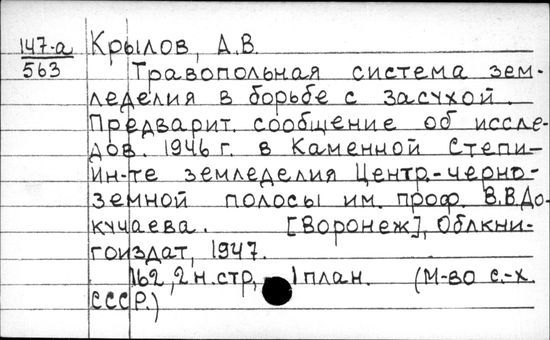 147-а Крылов, А.В.
563
Травопольная система зем-
леделия в борьбе с засухой.
Предварит. сообщение об иссле-
дов. 1946 г. в Каменной Степи-
ин-те земледелия Центр.-черно-
земной полосы им. проф. В.В.До-
кучаева. [Воронеж], Облкни-
гоиздат, 1947.
162, 2 н.стр, 1 план. (М-во с.-х.
СССР.)